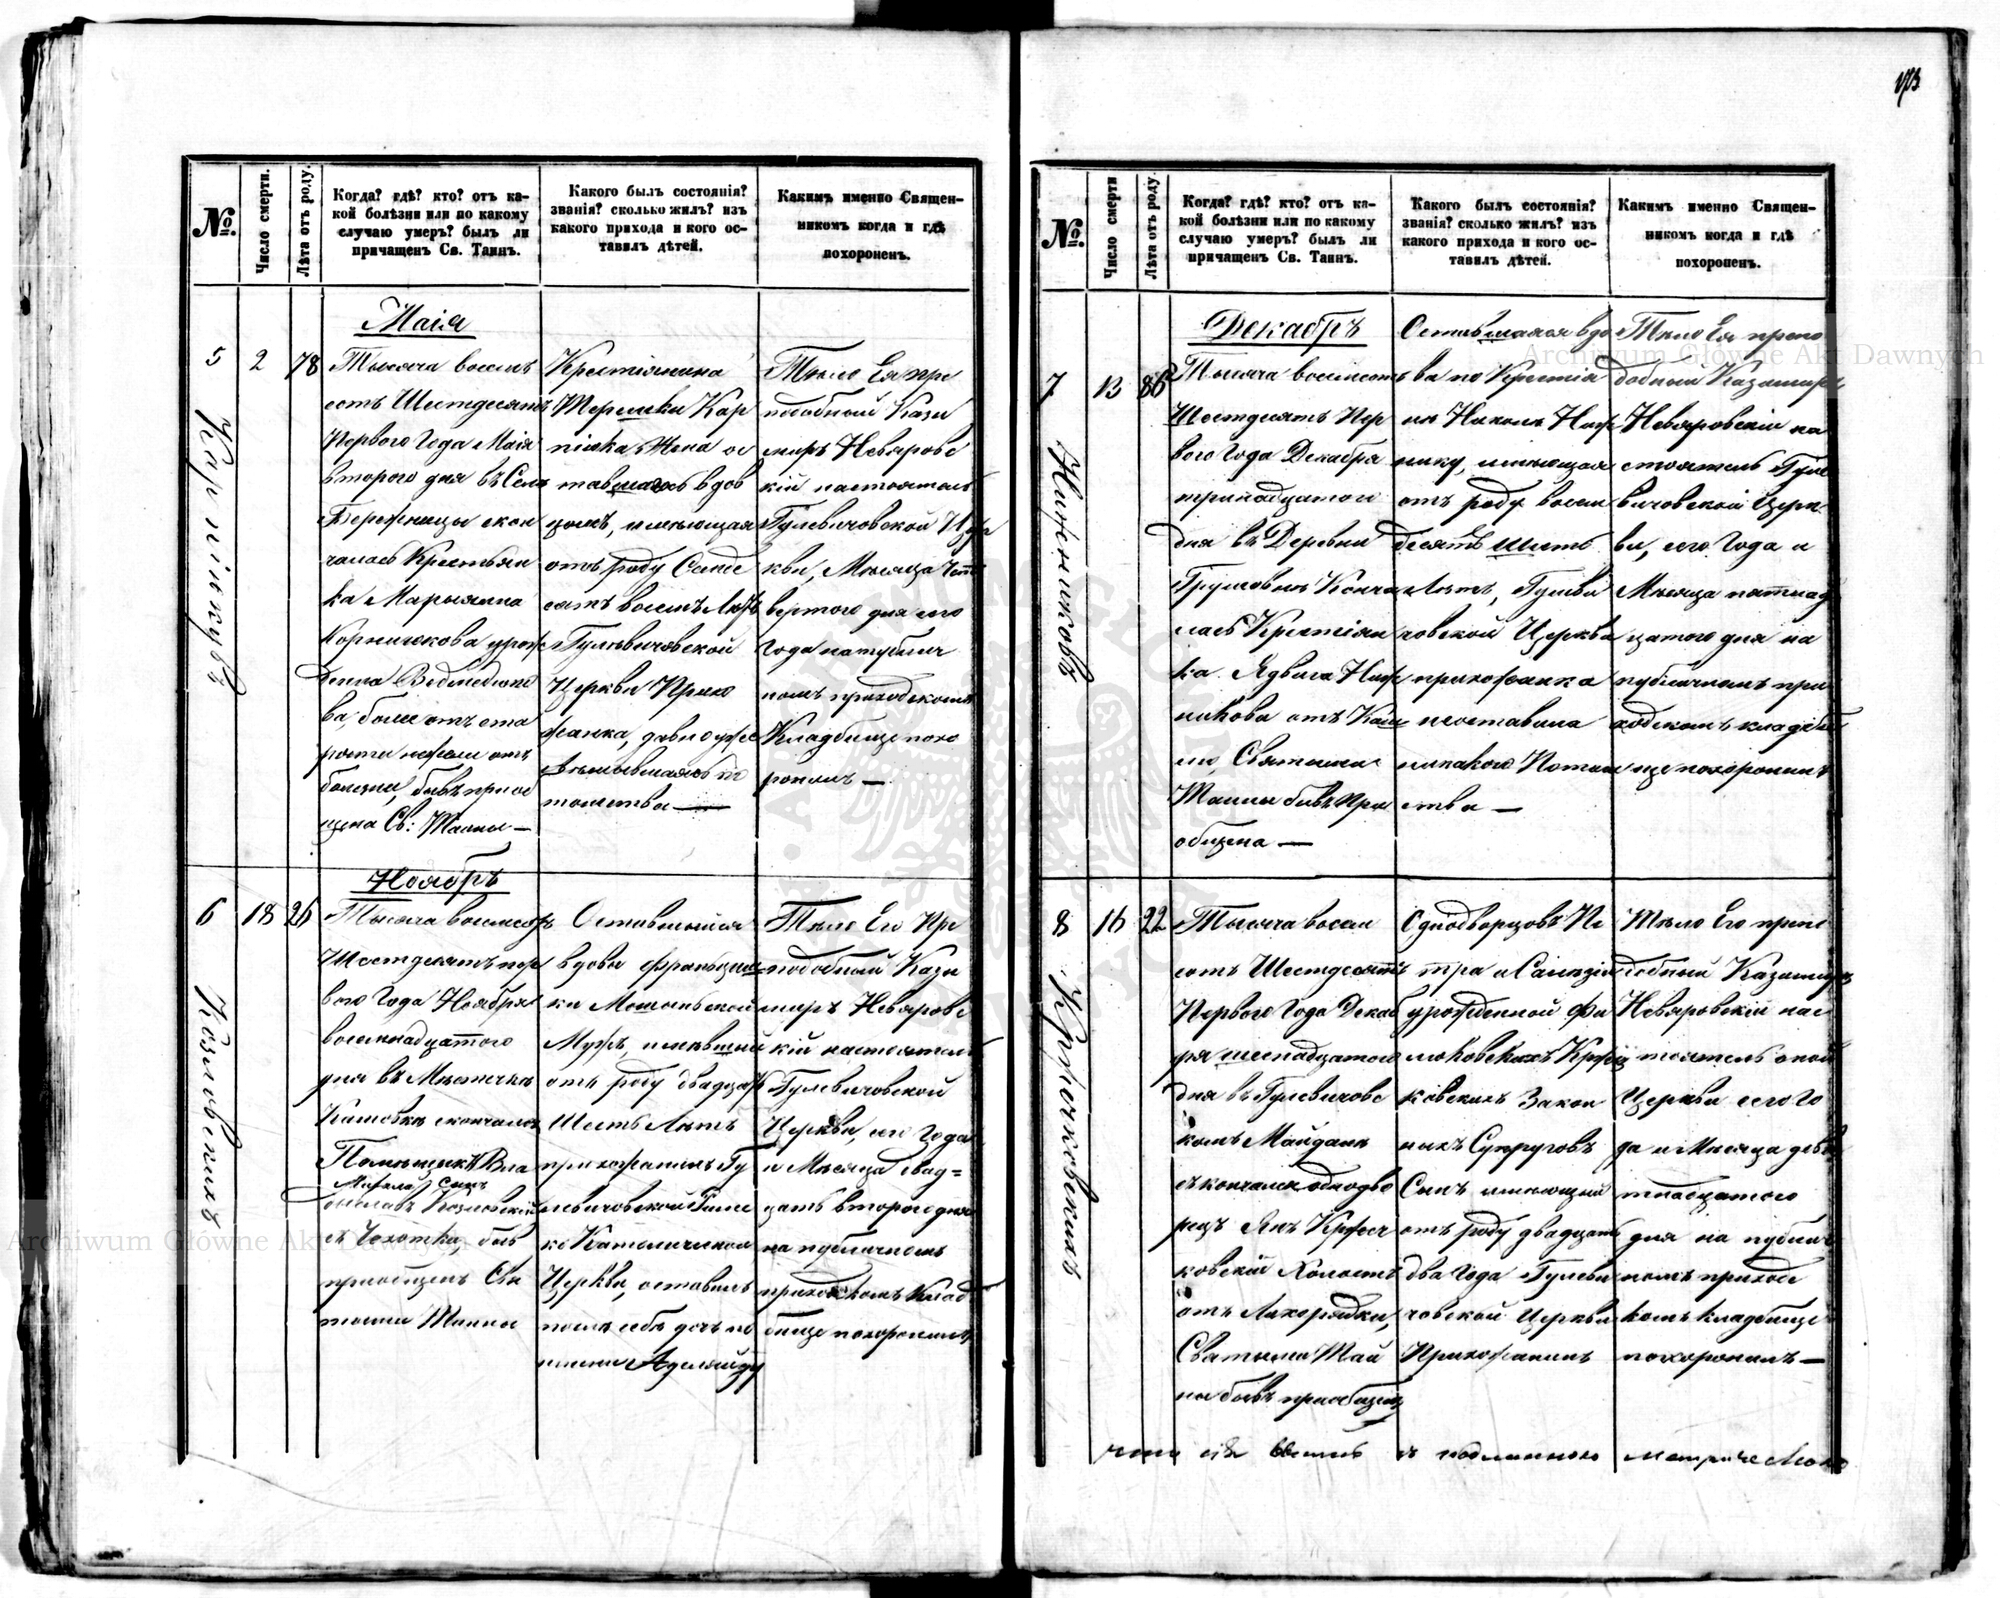 173
№.
Число смерти.
Лѣта отъ роду.
Когда? гдѣ? кто? отъ ка-
кой болѣзни или по какому
случаю умеръ? былъ ли
причащенъ Св. Таинъ.
Какого былъ состоянія?
званія? сколько жилъ? изъ
какого прихода и кого ос-
тавилъ дѣтей.
Какимъ именно Священ-
никомъ когда и гдѣ
похороненъ.
5
2
78
Маія
Тысяча восемь
сотъ Шестдесятъ
Перваго Года Маія
втораго дня въ Селѣ
Бережницы скон
чалась Крестьян
ка Марыянна
ва, болѣе отъ ста
рости нежели отъ
болезни, бывъ приоб
щена Св: Тайны —
Крестіянина
Терешки Кар
пюка Жена ос
тавшаяся вдов
цомъ, имеющая
отъ роду Семде
сятъ восемь Лѣтъ
Гулевичовской
Церкви Прихо
жанка, давно уже
томства —
Тѣло Ея пре
подобный Кази
миръ Невяровс
кій настоятель
Гулевичовской Цер
кви, Мѣсяца Чет
вертого дня сего
Года на публич
номъ приходскомъ
Кладбище похо
ронилъ —
6
18
26
Козловскихъ
Ноябрь
Тысяча восемсотъ
Шестдесятъ пер
вого Года Ноября
восемнадцатого
дня въ Мѣстечкѣ
скончался
Помѣщикъ Вла
Михала Сынъ
диславъ Козловскій
съ Чахотки, бывъ
приобщенъ Свя
тыми Тайны
Оставшійся
вдовы Францишки
Мужъ, имѣвшій
отъ роду двадцать
Шесть Лѣтъ
прихожанинъ Гу
левичовской Римс
ко Католической
Церкви, оставилъ
послѣ себѣ дочь по
имени Аделяиду
Тѣло Его Пре
подобный Кази
миръ Невяровс
кій настоятель
Гулевичовской
Церкви, сего Года
и Мѣсяца двад=
цать второго дня
на публичномъ
приходскомъ Клад
бище похоронилъ
№.
Число смерти
Лѣта отъ роду.
Когда? гдѣ? кто? отъ ка-
кой болѣзни или по какому
случаю умеръ? былъ ли
причащенъ Св. Таинъ.
Какого былъ состоянія?
званія? сколько жилъ? изъ
какого прихода и кого ос-
тавилъ дѣтей.
Какимъ именно Священ-
никомъ когда и гдѣ
похороненъ.
7
13
86
Декабрь
Тысяча восемсотъ
Шестдесятъ Пер
вого Года Декабря
тринадцатого
дня въ Деревни
лась Крестіян
ка Ядвига
Святыми
Тайны бывъ при
общена —
Оставшаяся вдо
ва по Крестія
имеющая
отъ роду восем
десятъ шесть
Лѣтъ, Гулеви
човской Церкви
прихожанка
неоставила
никакого Потом
ства —
Тѣло Ея препо
добный Казимиръ
Невяровскій на
стоятель Гуле
вичовской Церк
ви, сего Года и
Мѣсяца пятнад
цатого дня на
публичномъ при
ходскомъ кладби
ще похоронилъ
8
16
22
Тысяча восем
сотъ Шестдесятъ
Перваго Года Декаб
ря шеснадцатого
дня въ Гулевичовс
комъ Майданѣ
скончался однодво
рецъ Янъ
ковскій Холостъ
отъ Лихорадки,
Святыми Тай
ны бывъ приобщенъ
Однодворцовъ Пе
тра и
урожденной
ковскихъ Закон
ныхъ Супруговъ
Сынъ имеющій
отъ роду двадцать
два Года Гулеви
човской Церкви
Прихожанинъ
Тѣло Его препо
добный Казимиръ
Невяровскій нас
тоятель оной
Церкви сего Го
да и Мѣсяца девя
тнадцатого
дня на публич
номъ приходс
комъ кладбище
похоронилъ —
Archiwum Główne Akt Dawnych
Archiwum Główne Akt Dawnych